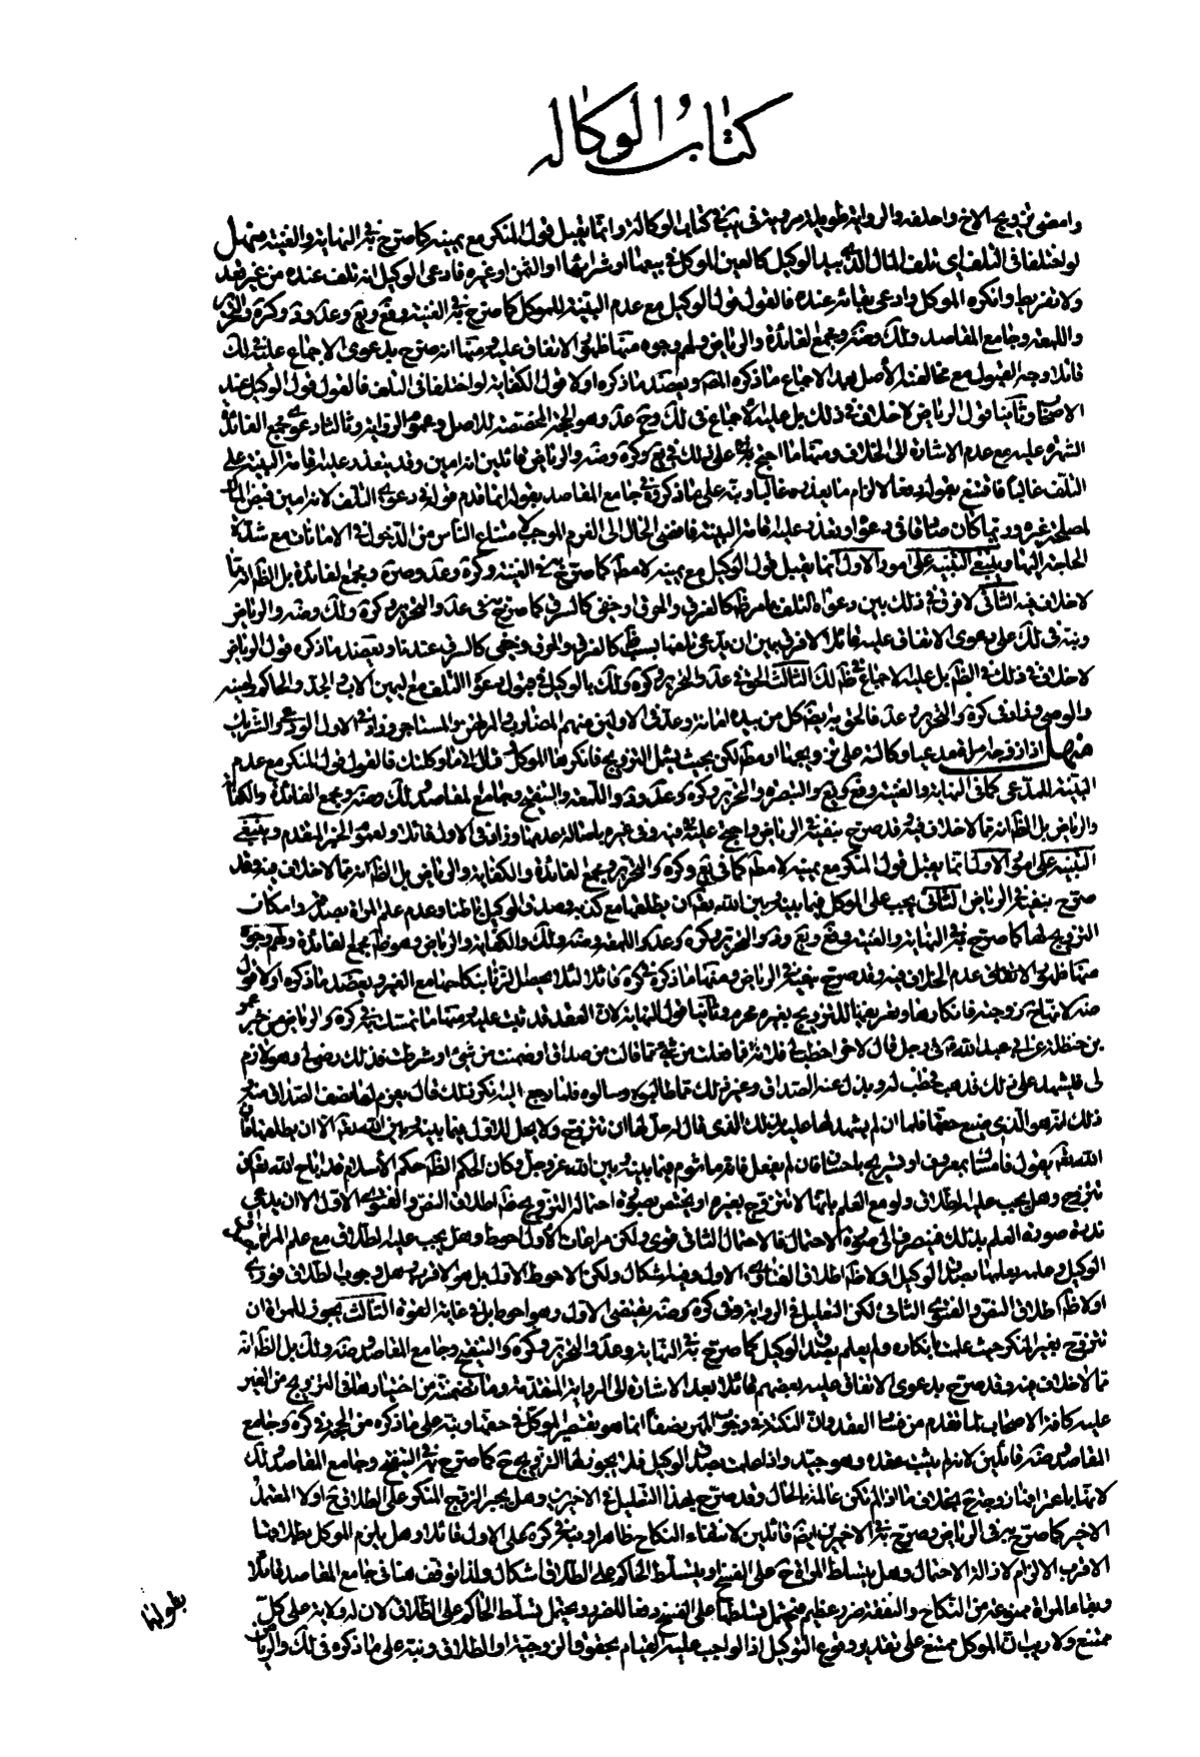 كتاب الوكاله
وامضى تزويج الاخ واحلفه والرواية طويلة مروية فى يب فى كتاب الوكالة وانما يقبل قول المنكر مع يمينه كما صرح به فى النهاية والغنية منهل
لو اختلفا فى التلف اى تلف المال الذى بيد الوكيل كالعين الموكل فى بيعها او شرائها او الثمن او غيره فادعى الوكيل انه تلف عنده من غير تعد
ولا تفريط وانكره الموكل وادعى بقائه عنده فالقول قول الوكيل مع عدم البينة للموكل كما صرح به فى الغنية وفع ويع وعد وكرة والتحرير
واللمعة وجامع المقاصد ولك وضه ومجمع الفائدة والرياض ولهم وجوه منها ظهور الاتفاق عليه ومنها انه صرح بدعوى الاجماع عليه فى لك
قائلا وجه القبول مع مخالفته الأصل بعد الاجماع ما ذكره المص ويعضد ما ذكره اولا قول الكفاية لو اختلفا فى التلف فالقول قول الوكيل عند
الاصحاب وثانيا قول الرياض لا خلاف فى ذلك بل عليه الاجماع فى لك وعد وهو الحجة المخصصة للاصل وعموم الرواية وثالثا دعوى مجمع الفائدة
الشهرة عليه مع عدم الاشارة الى الخلاف ومنها ما احتج به على ذلك فى كرة وضه والرياض قائلين انه امين وقد يتعذر عليه اقامة البينة على
التلف غالبا فاقتنع بقوله دفعا لالزام ما يتعذر غالبا ونبه على ما ذكروه فى جامع المقاصد بقوله انما قدم قوله فى دعوى التلف لانه امين قبض المال
لمصلحة غيره وربما كان صادقا فى دعواه وتعذر عليه اقامة البينة فافضى الحال الى الغرم الموجب لامتناع الناس من الدخول فى الامانات مع شدة
الحاجة اليها وينبغى التنبيه على امور الاول انما يقبل قول الوكيل مع يمينه لا مطلقا كما صرح به فى الغنية وكرة وعد وضه ومجمع الفائدة بل الظ انه مما
لا خلاف فيه الثانى لا فرق فى ذلك بين دعواه التلف بامر ظ كالغرق والحرق او خفى كالسرق كما صرح به فى عد والتحرير وكرة ولك وضه والرياض
ونبه فى لك على دعوى الاتفاق عليه قائلا لا فرق بين ان يدعى تلفها بسبب ظ كالغرق والحرق وخفى كالسرق عندنا ويعضد ما ذكره قول الرياض
لا خلاف فى ذلك فى الظ بل عليه الاجماع فى ظ لك الثالث الحق فى عد والتحرير وكرة ولك بالوكيل فى قبول دعوى التلف مع اليمين الاب والجد والحاكم وامينه
والوصى وزاد فى كرة والتحرير وعد فالحق به ايضا كل من بيده امانة وعد فى الاولين منهم المضارب المرتهن والمستاجر وزاد فى الاول الودعى والشريك
منهل اذا زوجه امرأة بعد وكالته على تزويجها او مطلقا لكن بحيث يشمل التزويج فانكرها الموكل وقال انى ما وكلتك فالقول قول المنكر مع عدم
البينة للمدعى كما فى النهاية والغنية وفع ويع والتبصرة والتحرير وكرة وعد ود واللمعة والتنقيح وجامع المقاصد ولك وضه ومجمع الفائدة والكفاية
والرياض بل الظ انه مما لا خلاف فيه وقد صرح بنفيه فى الرياض واحتج عليه فيه وفى غيره باصالة عدمها وزاد فى الاول قائلا ولعموم الخبر المتقدم وينبغى
التنبيه على امور الاول انما يقبل قول المنكر مع يمينه لا مطلقا كما فى يع وكرة والتحرير ومجمع الفائدة والكفاية والرياض بل الظ انه مما لا خلاف فيه وقد
صرح بنفيه فى الرياض الثانى يجب على الموكل فيما بينه وبين الله تعالى ان يطلقها مع كذبه وصدق الوكيل باطنا وعدم علم المراة بصدقه وامكان
التزويج لها كما صرح به فى النهاية والغنية وفع ويع ود والتحرير وكرة وعد واللمعة وضه ولك والكفاية والرياض وهو ظ مجمع الفائدة ولهم وجوه
منها ظهور الاتفاق على عدم الخلاف فيه وقد صرح بنفيه فى الرياض ومنها ما ذكره فى كرة قائلا لئلا يحصل الزنا بنكاحها مع الغير ويعضد ما ذكره اولا قول
ضه لانها ح زوجته فانكارها وتعريضها للتزويج بغيره محرم وثانيا قول النهاية لان العقد قد ثبت عليه ومنها ما تمسك به فى كرة والرياض من خبر عمر
بن حنظلة عن ابى عبد الله فى رجل قال لآخر اخطب لى فلانة فما فعلت من شىء مما قالت من صداق او ضمنت من شىء او شرطت فذلك رضى لى وهو لازم
لى ولم يشهد على ذلك فذهب فخطب له وبذل عنه الصداق وغير ذلك مما طالبوه وسألوه فلما رجع اليه انكر ذلك كله قال يغرم لها نصف الصداق عنه
ذلك انه هو الذى ضيع حقها فلما ان لم يشهد لها عليه بذلك الذى قال له حل لها ان تتزوج ولا يحل للاول فيما بينه وبين الله تعالى الا ان يطلقها لان
الله تعالى يقول فامساك بمعروف او تسريح باحسان فان لم يفعل فانه مأثوم فيما بينه وبين الله عز وجل وكان الحكم الظ حكم الاسلام قد اباح الله تعالى ان
تتزوج وهل يجب عليه الطلاق ولو مع العلم بانها لا تتزوج بغيره او يختص بصورة احتمال التزويج ظ اطلاق النص والفتوى الاول الا ان يدعى
ندرة صورة العلم بذلك فينصرفا الى صورة الاحتمال فالاحتمال الثانى قوى ولكن مراعات الاول احوط وهل يجب عليه الطلاق مع علم المراة بصدق
الوكيل وعلمه بعلمها بصدق الوكيل اولا ظ اطلاق الفتاوى الاول وفيه اشكال ولكن الاحوط الاول بل هو الاقرب وهل وجوب الطلاق فورى
اولا ظ اطلاق النص والفتوى الثانى لكن التعليل فى الرواية وفى كرة وضه يقتضى الاول وهو احوط بل فى غاية القوة الثالث يجوز للمراة ان
تتزوج بغير المنكر حيث علمت بانكاره ولم يعلم بصدق الوكيل كما صرح به فى النهاية وعد والتحرير وكرة والتنقيح وجامع المقاصد وضه ولك بل الظ انه
مما لا خلاف فيه وقد صرح بدعوى الاتفاق عليه بعضهم قائلا بعد الاشارة الى الرواية المتقدمة وما تضمنته من اختيارها فى التزويج من الغير
عليه كافة الاصحاب لما تقدم من فساد العقد وان النكتة فى وجوب المهر نصفا انما هو تقصير الموكل فى حقها ونبه على ما ذكره من الحجة فى كرة وجامع
المقاصد وضه قائلين لانه لم يثبت عقده وهو جيد واذا علمت بصدق الوكيل فلا يجوز لها التزويج ح كما صرح به فى التنقيح وجامع المقاصد ولك
لانها باعترافها زوجة بخلاف ما اذا لم تكن عالمة بالحال وقد صرح بهذا التعليل فى الاخيرين وهل يجبر الزوج المنكر على الطلاق ح او لا المعتمد
الاخير كما صرح به فى الرياض وصرح به فى الاخيرين ايضا قائلين لانتفاء النكاح ظاهرا ونبه فى كرة على الاول قائلا وهل يلزم الموكل بطلاقها
الاقرب الالزام لازالة الاحتمال وهل يتسلط المراة ح على الفسخ او يتسلط الحاكم على الطلاق اشكال ولذا توقف هنا فى جامع المقاصد قائلا
وبقاء المراة ممنوعة من النكاح والنفقة ضرر عظيم فيحتمل تسلطها على الفسخ دفعا للضرر ويحتمل تسلط الحاكم على الطلاق لان له ولاية على كل
ممتنع ولا ريب ان الموكل ممتنع على تقدير وقوع التوكيل اذ الواجب عليه القيام بحقوق الزوجية او الطلاق ونبه على ما ذكره فى لك والرياض
بقولهما